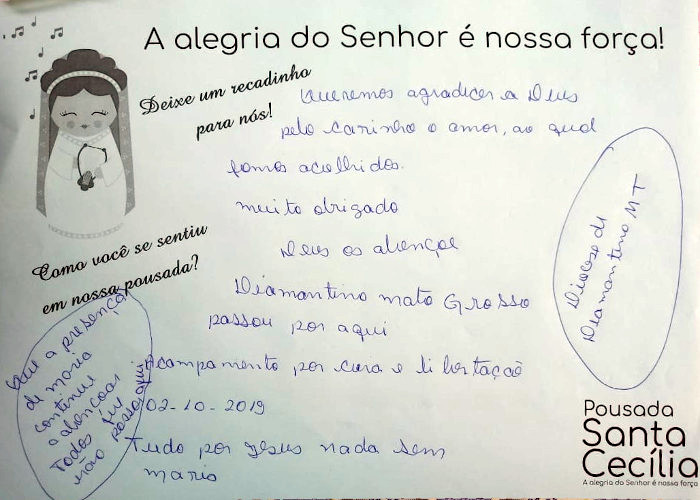 A alegria do Senhor é nossa força!
Deixe um recadinho
para nós!
Queremos agradecer a Deus
pelo carinho e amor, ao qual
fomos acolhidos.
muito obrigado
Deus os abençoe
Como você se sentiu
em nossa pousada?
Diamantino mato Grosso
passou por aqui
Acampamento por cura e libertação
02-10-2019
Tudo por Jesus nada sem
maria
Diocese de
Diamantino MT
Que a presença
de maria
continue
a abençoar
Todos
que
passa aqui
Pousada
Santa
Cecília
A alegria do Senhor é nossa força